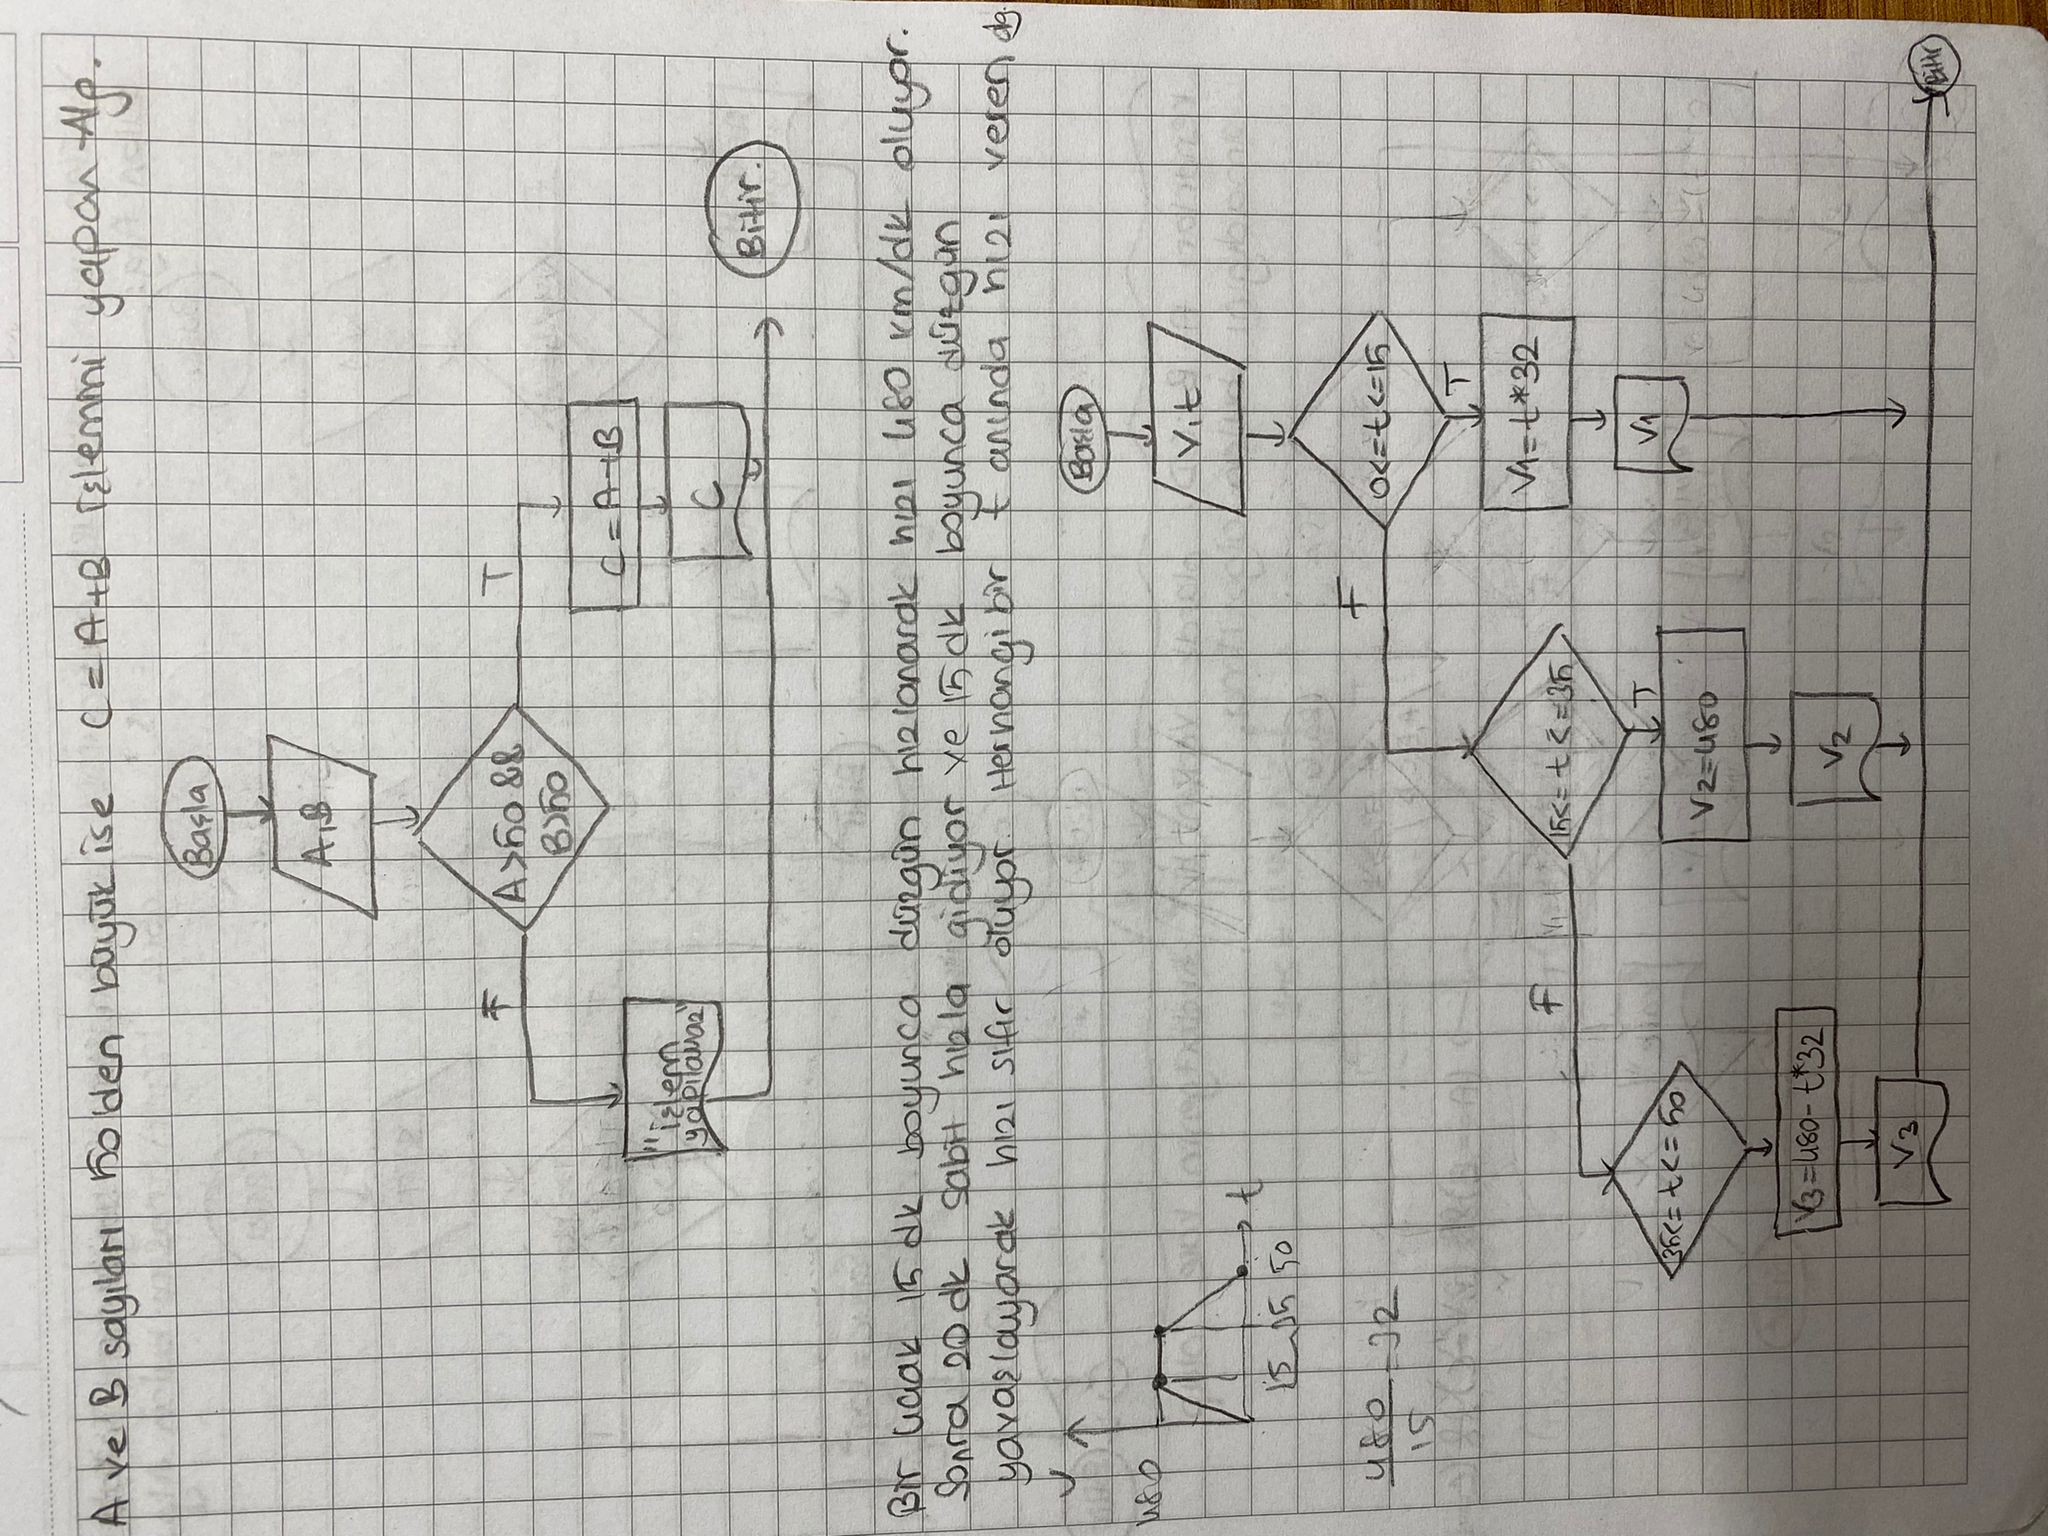 A ve B sayıları 50'den büyük ise C=A+B işlemini yapan Alg.
Başla
A,B
A>50&&
B>50
F
T
"işlem
yapılamaz"
C=A+B
C
Bitir.
Bir uçak 15 dk boyunca düzgün hızlanarak hızı 480 km/dk oluyor.
Sonra 20 dk sabit hızla gidiyor ve 15 dk boyunca düzgün
yavaşlayarak hızı sıfır oluyor. Herhangi bir t anında hızı veren dg.
V
480
15 35 50
t
480
15
32
Başla
V,t
0<=t<=15
F
T
V1=t*32
V1
15<=t<=35
F
T
V2=480
V2
35<=t<=50
V3=480-t*32
V3
Bitir